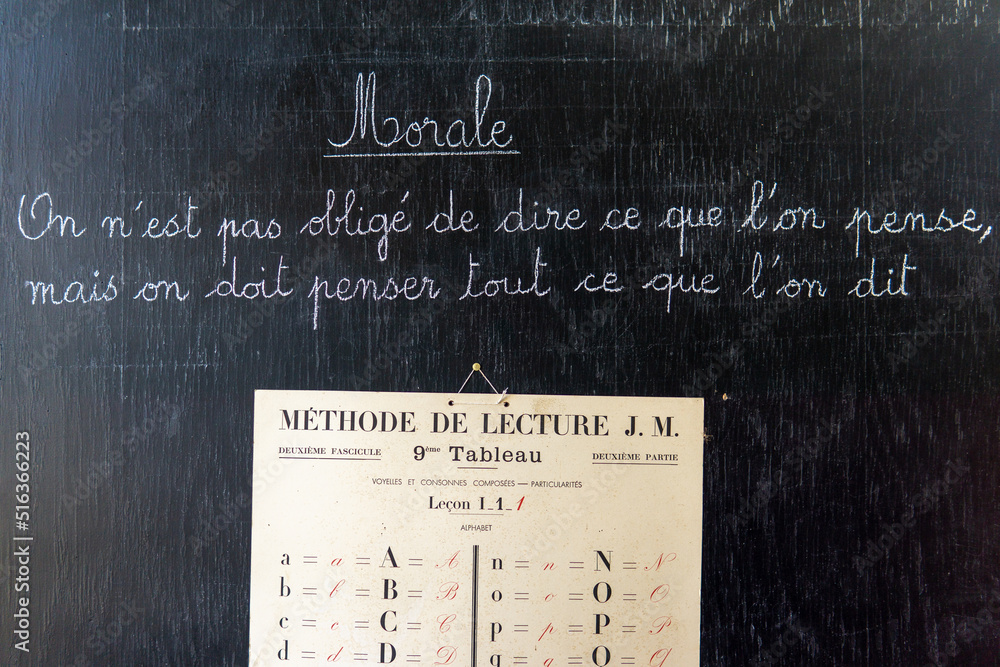 Morale
On n'est pas obligé de dire ce que l'on pense,
mais on doit penser tout ce que l'on dit
MÉTHODE DE LECTURE J. M.
DEUXIÈME FASCICULE 9ème Tableau DEUXIÈME PARTIE
VOYELLES ET CONSONNES COMPOSÉES — PARTICULARITÉS
Leçon I_1_1
ALPHABET
a = a = A = A n = n = N = N
b = b = B = B o = o = O = O
c = c = C = C p = p = P = P
d = d = D = D q = q = Q = Q
Adobe Stock
516366223